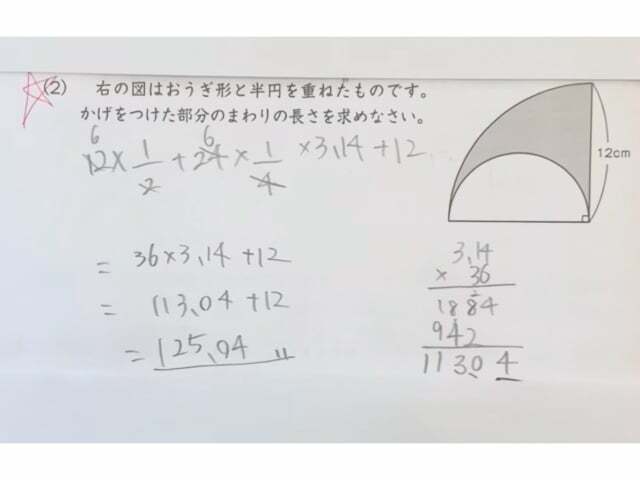 (2) 右の図はおうぎ形と半円を重ねたものです。
かげをつけた部分のまわりの長さを求めなさい。
12cm
6 6
12 × 1/2 + 24 × 1/4 × 3.14 + 12
= 36 × 3.14 + 12
= 113.04 + 12
= 125.04 〃
3.14
× 36
1884
942
113.04